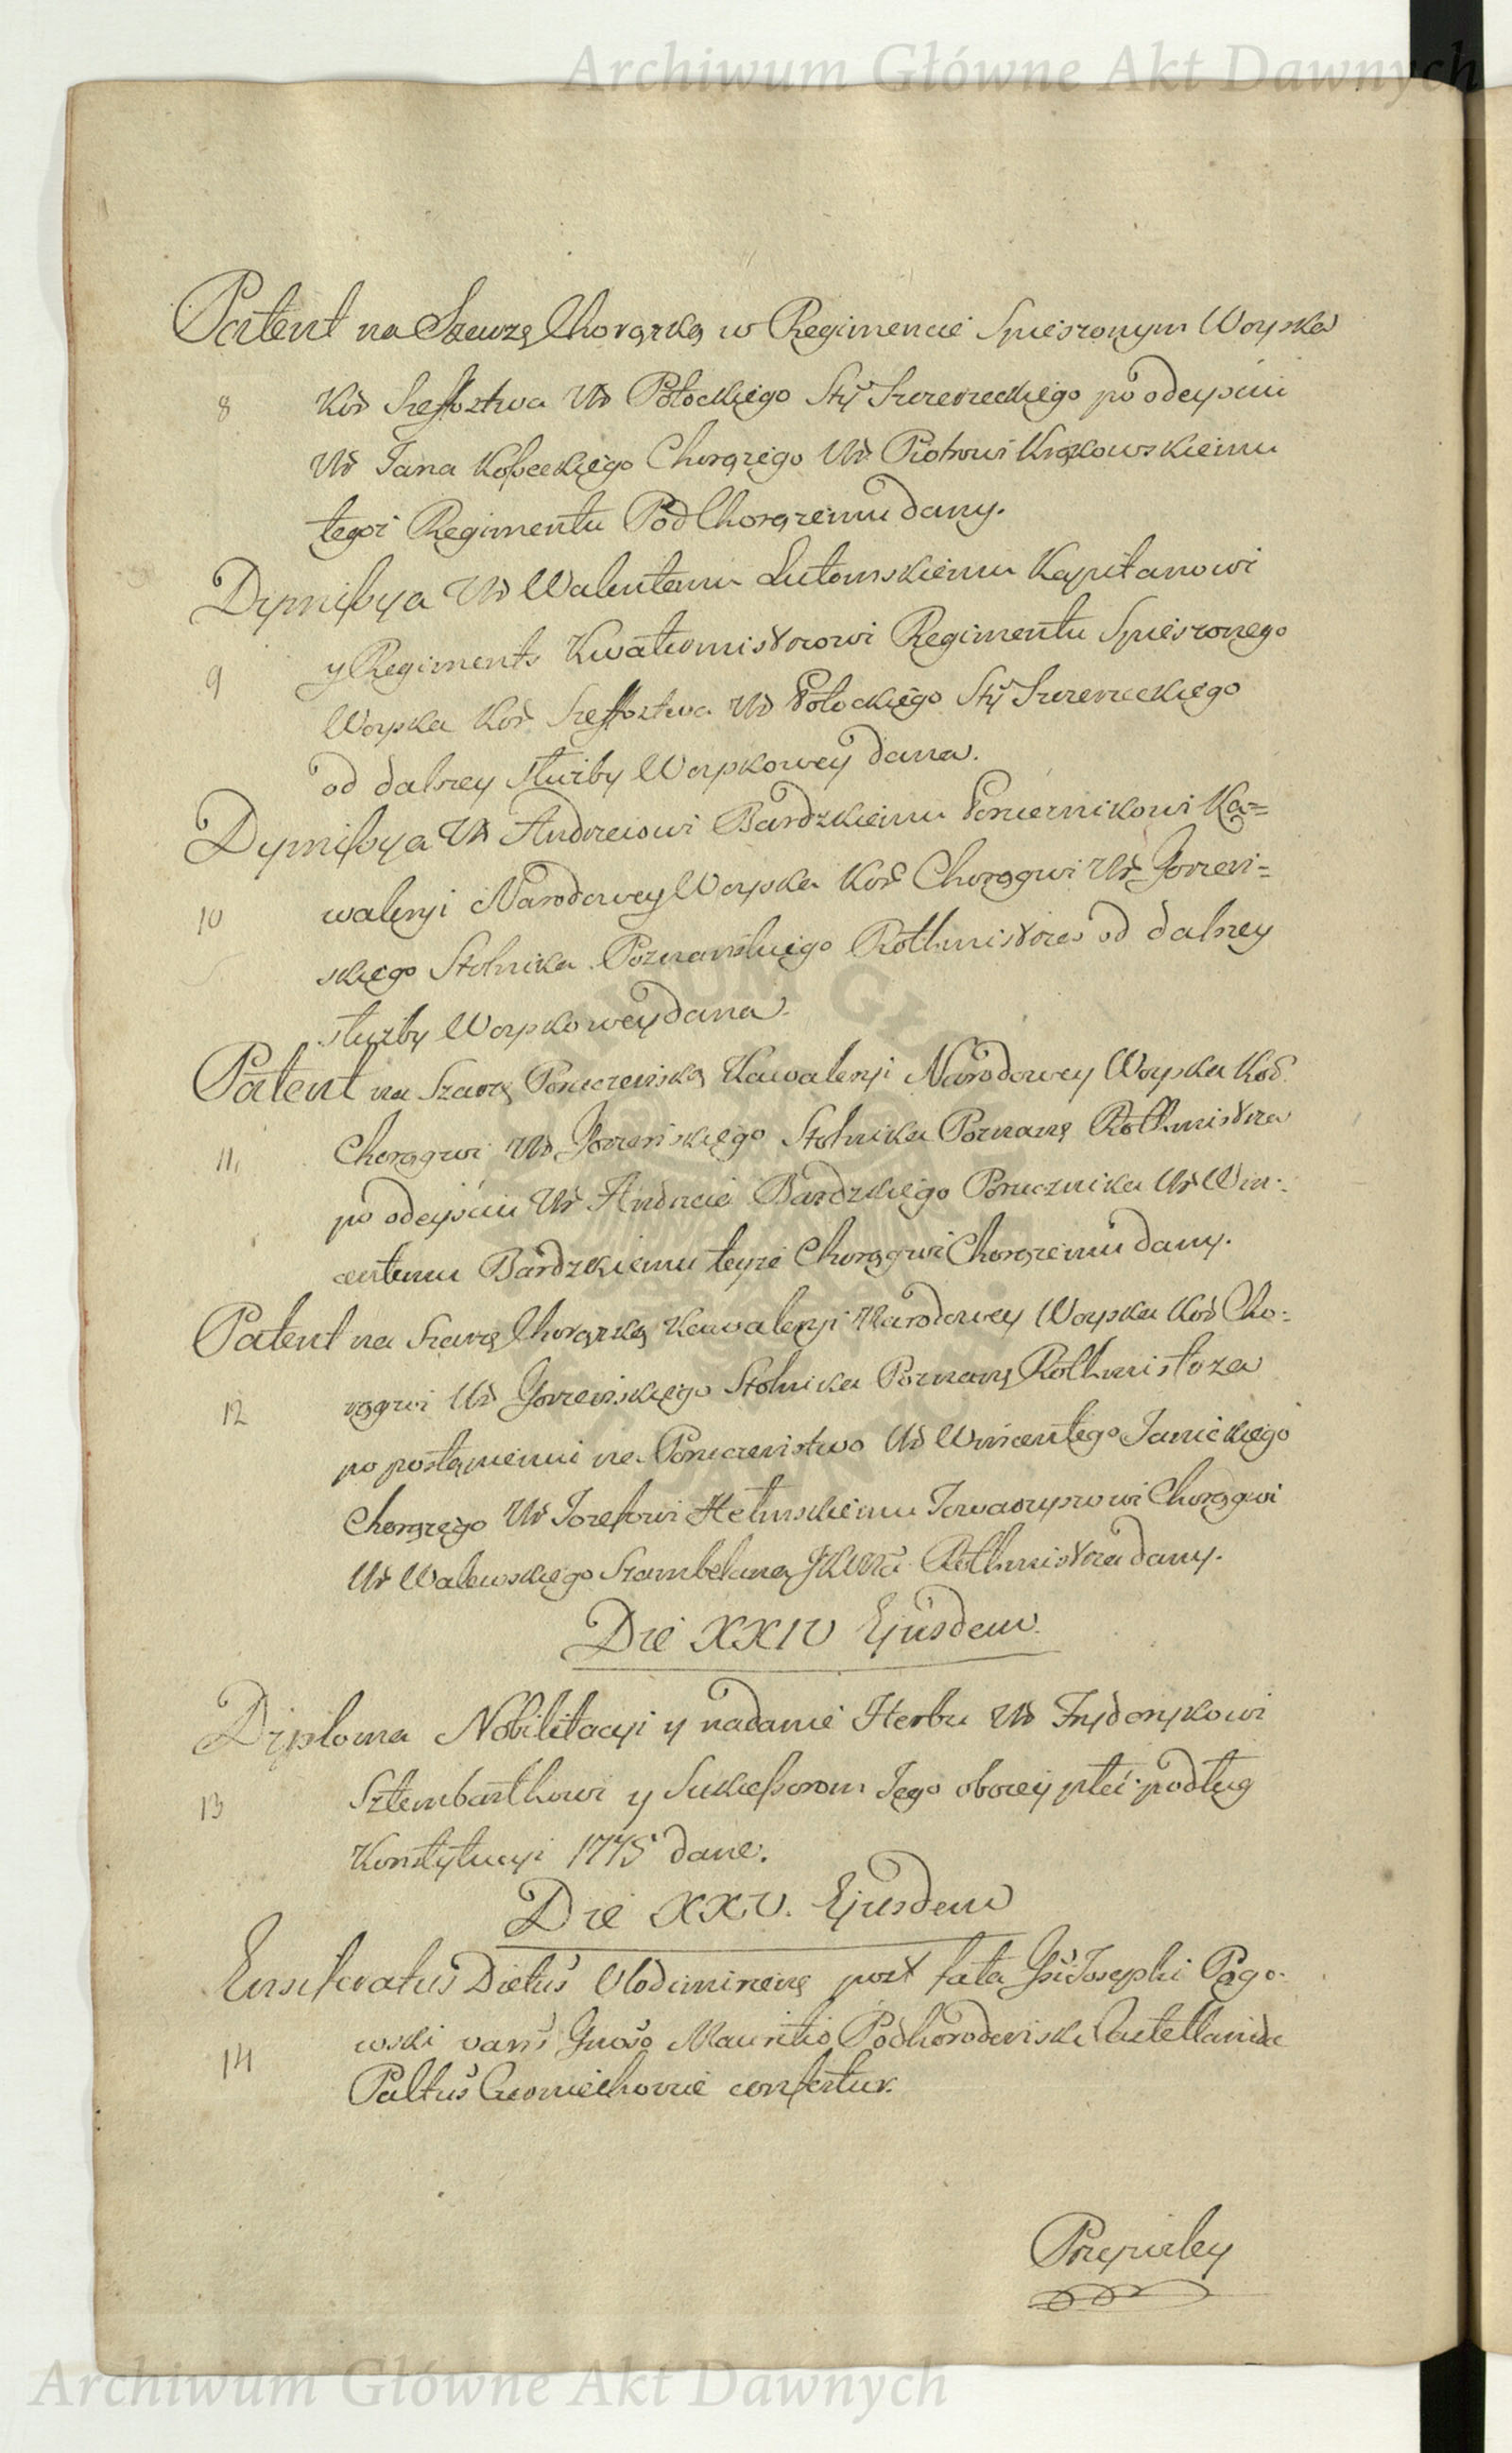 Archiwum Główne Akt Dawnych
Patent na Szarżą Chorązką w Regimencie Spieszonym Woyska
8 Kor Szeffostwa Ur Potockiego Sty Szczerzeckiego po odeyściu
Ur Jana Chorązego Ur Piotrowi Krąkowskiemu
tegoż Regimentu PodChorązemu dany.
Dymissya Ur Walentemu Lutomskiemu Kapitanowi
9 y Regiments Kwatermistrzowi Regimentu Spieszonego
Woyska Kor Szeffostwa Ur Potockiego Sty Szczerzeckiego
od dalszey służby Woyskowey dana.
Dymissya Ur Andrzeiowi Bardzkiemu Porucznikowi Ka=
10 waleryi Narodowey Woyska Kor Chorągwi Ur Gorzeń=
skiego Stolnika Poznanskiego Rothmistrza od dalszey
służby Woyskowey dana.
Patent na Szarżę Poruczeńską Kawaleryi Narodowey Woyska Kor
11. Chorągwi Ur Gorzeńskiego Stolnika Poznang Rothmistrza
po odeyściu Ur Andrzeia Bardzkiego Porucznika Ur Win:
centemu Bardzkiemu teyże Chorągwi Chorązemu dany.
Patent na Szarżę Chorązką Kawaleryi Narodowey Woyska Kor Cho:
12 rągwi Ur Gorzeńskiego Stolnika Poznang Rothmistrza
po postąpieniu na Poruczenistwo Ur Wincentego Janickiego
Chorązego Ur Jozefowi Hetmskiemu Towarzyszowi Chorągwi
Ur Walewskiego Szambelana JKMci Rothmistrza dany.
Die XXIV Ejusdem.
Diploma Nobilitacyi y nadanie Herbu Ur Frydrykowi
13 Sztembarthowi y Sukcessorom Jego oboiey płci podług
Konstytucyi 1775 dane.
Die XXV. Ejusdem
Ensiferatus Dictus Vlodimirieng post fata Gsi Josephi Pągo:
14 wski vans Gnoso Mauritio Podhorodenski Castellanidae
Paltus Czerniechoviae confertur.
Przywiley
Archiwum Główne Akt Dawnych